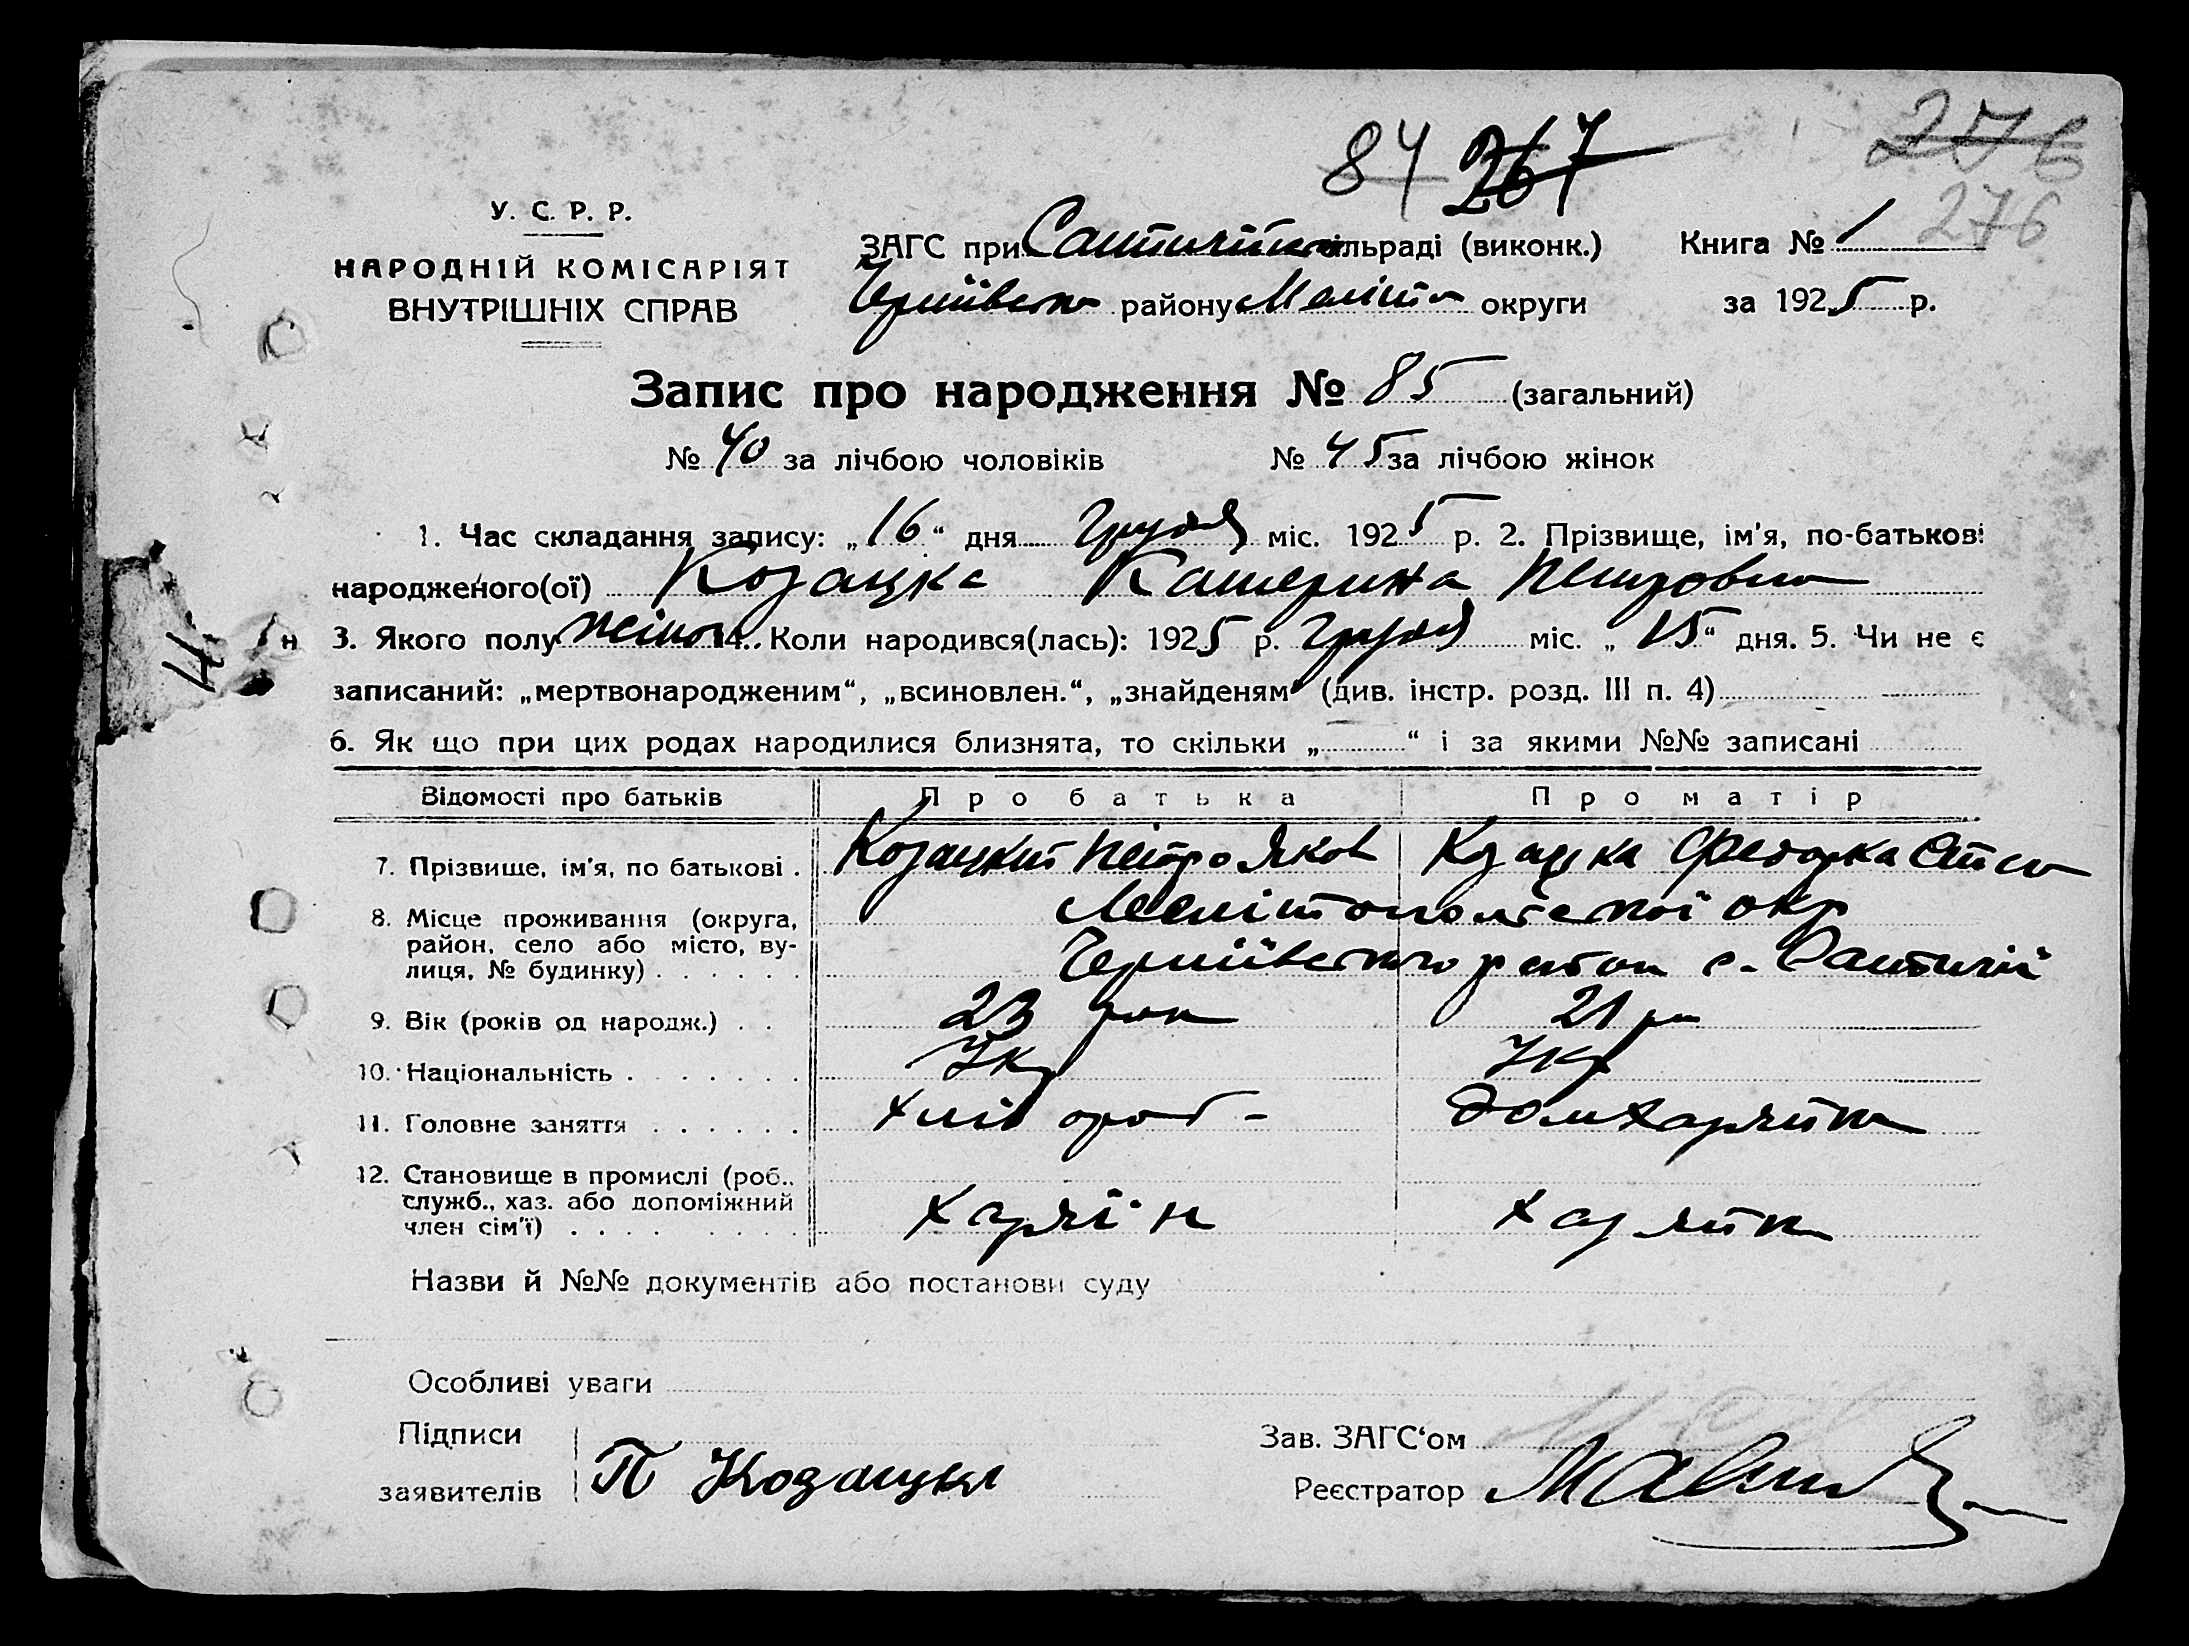 84 267 276
276
У. С. Р. Р.
НАРОДНІЙ КОМІСАРІЯТ
ВНУТРІШНІХ СПРАВ
ЗАГС при сільраді (виконк.) Книга № 1
району Меліт округи за 1925 р.
Запис про народження № 85 (загальний)
№ 40 за лічбою чоловіків № 45 за лічбою жінок
1. Час складання запису: „16“ дня Грудня міс. 1925 р. 2. Прізвище, ім'я, по-батькові
народженого(ої) Козацка Катерина Петровна
3. Якого полу жіноч 4. Коли народився(лась): 1925 р. Грудня міс. „15“ дня. 5. Чи не є
записаний: „мертвонародженим“, „всиновлен.“, „знайденям“ (див. інстр. розд. III п. 4)
6. Як що при цих родах народилися близнята, то скільки „ “ і за якими №№ записані
Відомості про батьків Про батька Про матір
7. Прізвище, ім'я, по батькові . Козацкий Петро Яков Козацка Федорка
8. Місце проживання (округа, Мелітопольскої окр
район, село або місто, ву-
лиця, № будинку) . . . . . району с.
9. Вік (років од народж.) . . 23 рок 21 рок
10. Національність . . . . . . . Укр Укр
11. Головне заняття . . . . . . Хлібороб- Домхазяйка
12. Становище в промислі (роб.,
служб., хаз. або допоміжний
член сім'ї) . . . . . . . . Хазяїн Хазяйка
Назви й №№ документів або постанови суду
Особливі уваги
Підписи Зав. ЗАГС‘ом
заявителів П Козацкі Реєстратор